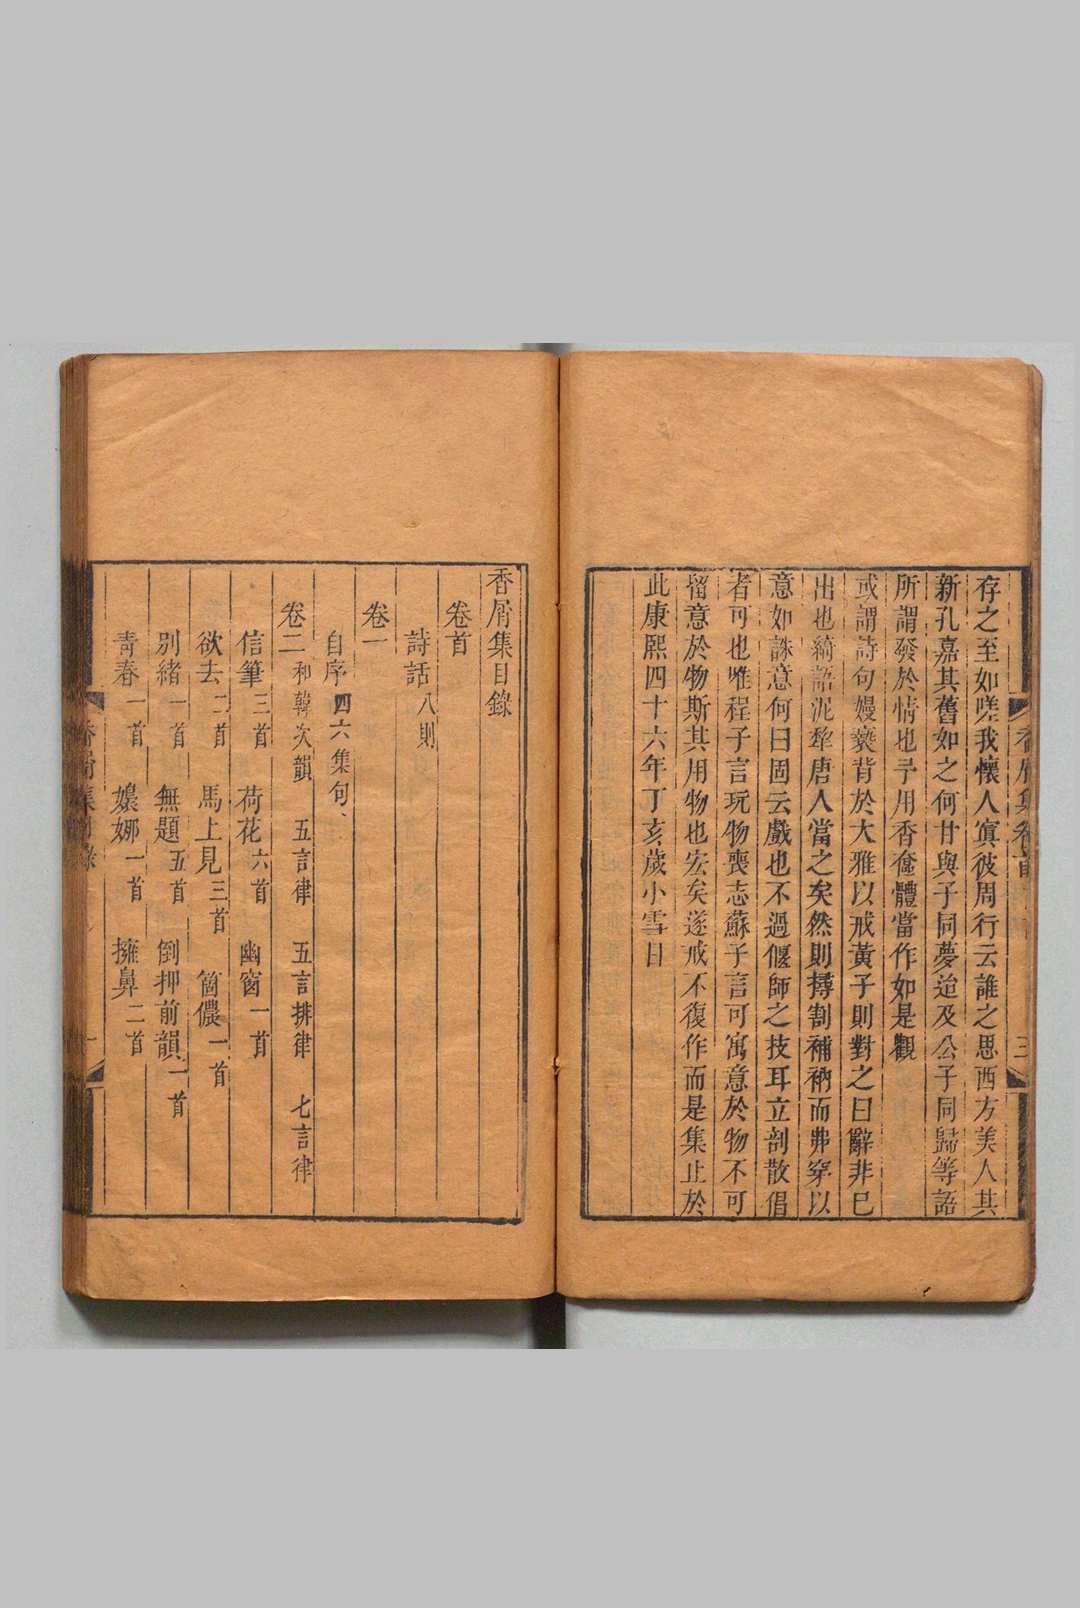 存之至如嗟我懷人寘彼周行云誰之思西方美人其
新孔嘉其舊如之何甘與子同夢迨及公子同歸等語
所謂發於情也予用香奩體當作如是觀
或謂詩句嫚褻背於大雅以戒黃子則對之曰辭非已
出也綺語泥犂唐人當之矣然則撏割補衲而弗穿以
意如誅意何曰固云戲也不過偃師之技耳立剖散倡
者可也唯程子言玩物喪志蘇子言可寓意於物不可
留意於物斯其用物也宏矣遂戒不復作而是集止於
此康熙四十六年丁亥歲小雪日
香屑集卷首
三
香屑集目錄
卷首
詩話八則
卷一
自序四六集句
卷二和韓次韻 五言律 五言排律 七言律
信筆三首 荷花六首 幽窗一首
欲去二首 馬上見三首 箇儂一首
別緒一首 無題五首 倒押前韻一首
靑春一首 嬝娜一首 擁鼻二首
香屑集目錄
一